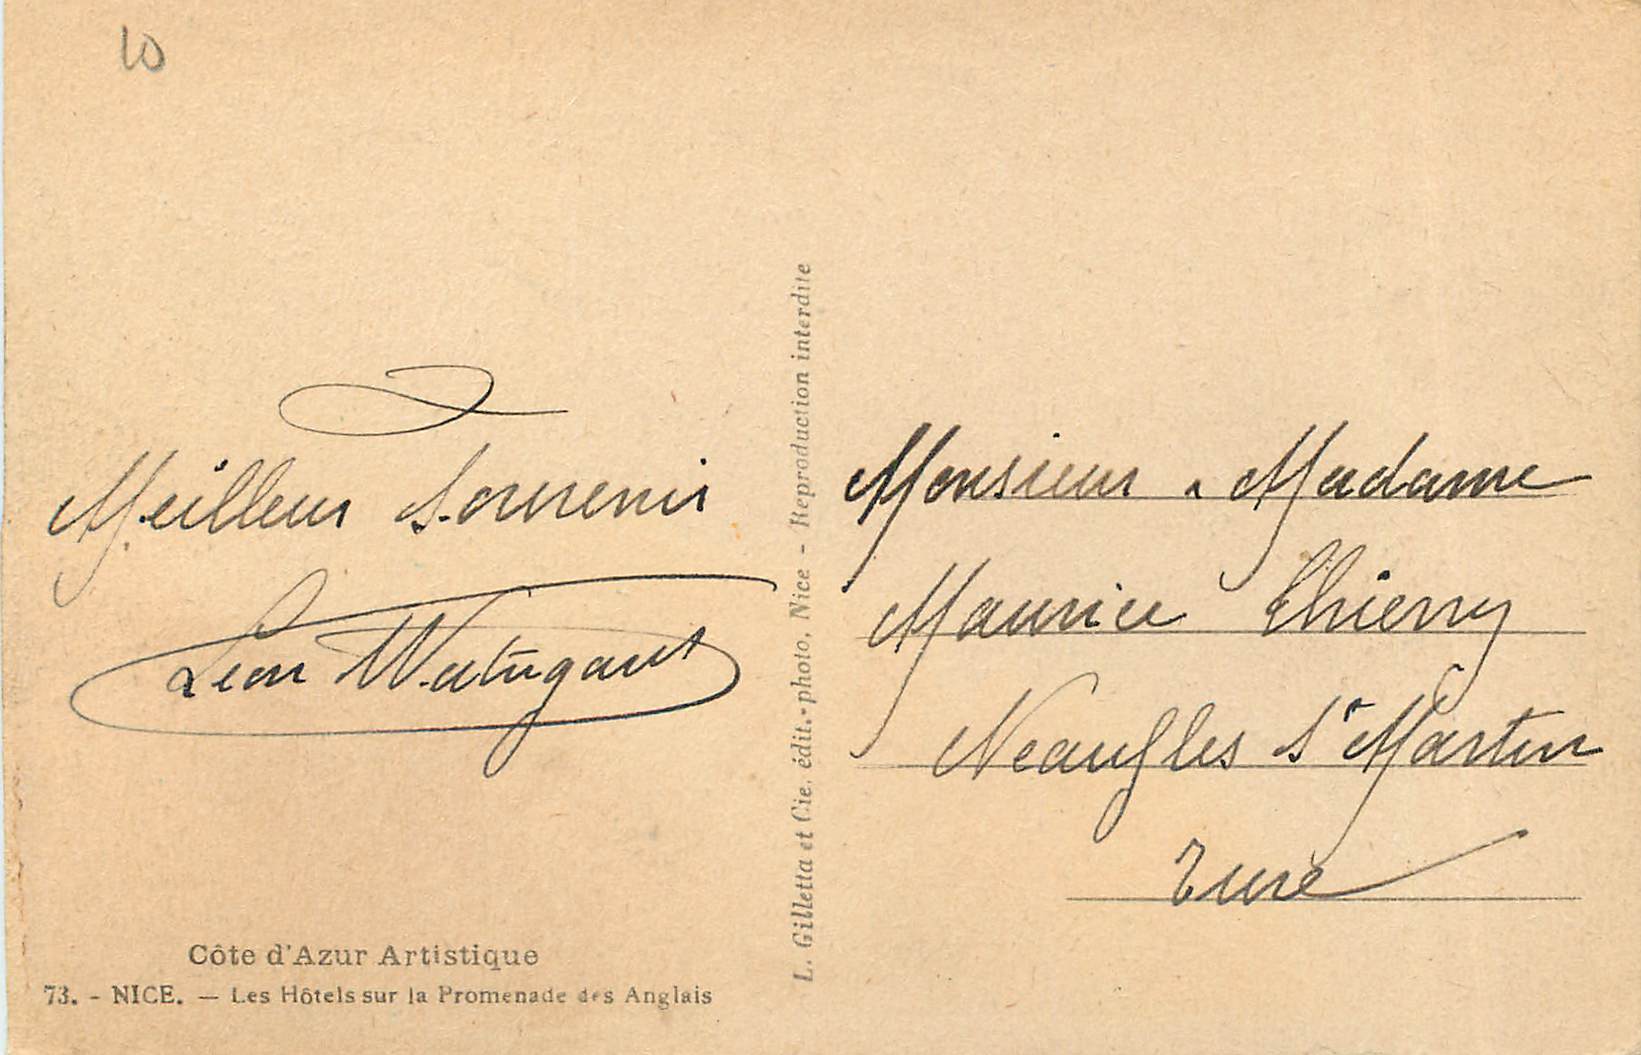 10
Meilleur Souvenir
Léon
Monsieur & Madame
Maurice Thierry
Neaufles St Martin
Eure
L. Gilletta et Cie, édit.-photo, Nice - Reproduction interdite
Côte d'Azur Artistique
73. - NICE. — Les Hôtels sur la Promenade des Anglais